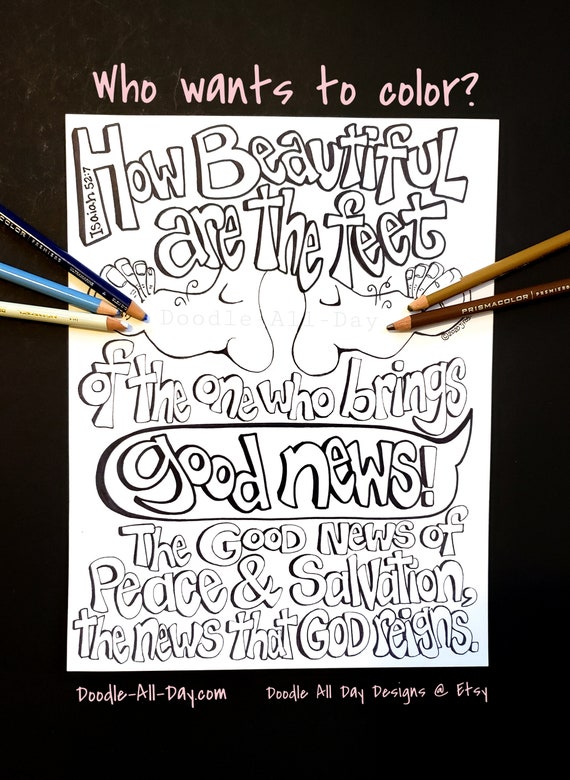 Who wants to color?
Isaiah 52:7
How Beautiful
are the feet
Doodle-All-Day
of the one who brings
good news!
The Good News of
Peace & Salvation,
the news that God reigns.
PRISMACOLOR PREMIER
Doodle-All-Day.com
Doodle All Day Designs @ Etsy